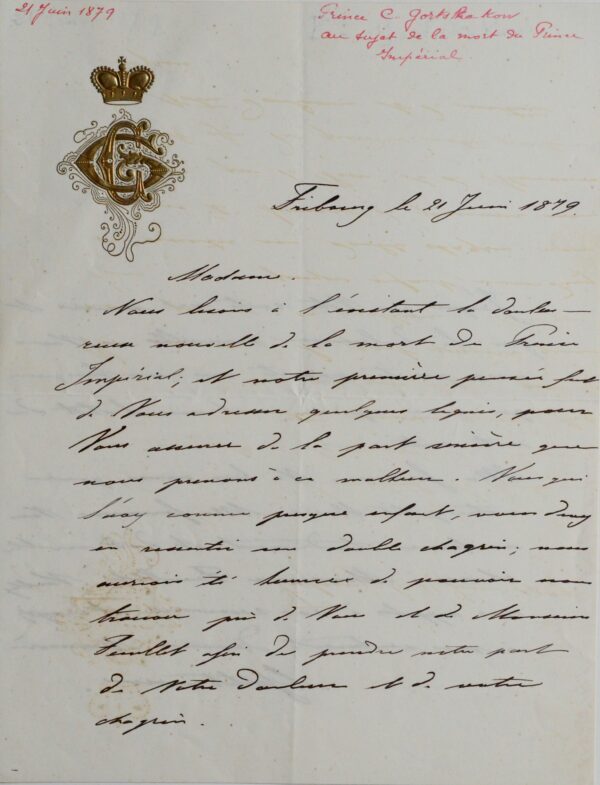 21 Juin 1879
Prince C. Gortshakow
au sujet de la mort du Prince
Impérial
CG
Fribourg le 21 Juin 1879.
Madame.
Nous lisons à l'instant la doulou-
reuse nouvelle de la mort du Prince
Impérial; et notre première pensée fut
de Vous adresser quelques lignes, pour
Vous assurer de la part sincère que
nous prenons à ce malheur. Vous qui
l'avez connu presque enfant, vous devez
en ressentir un double chagrin; nous
aurions été heureux de pouvoir nous
trouver près de Vous et de Monsieur
Feuillet afin de prendre notre part
de Votre douleur et de votre
chagrin.